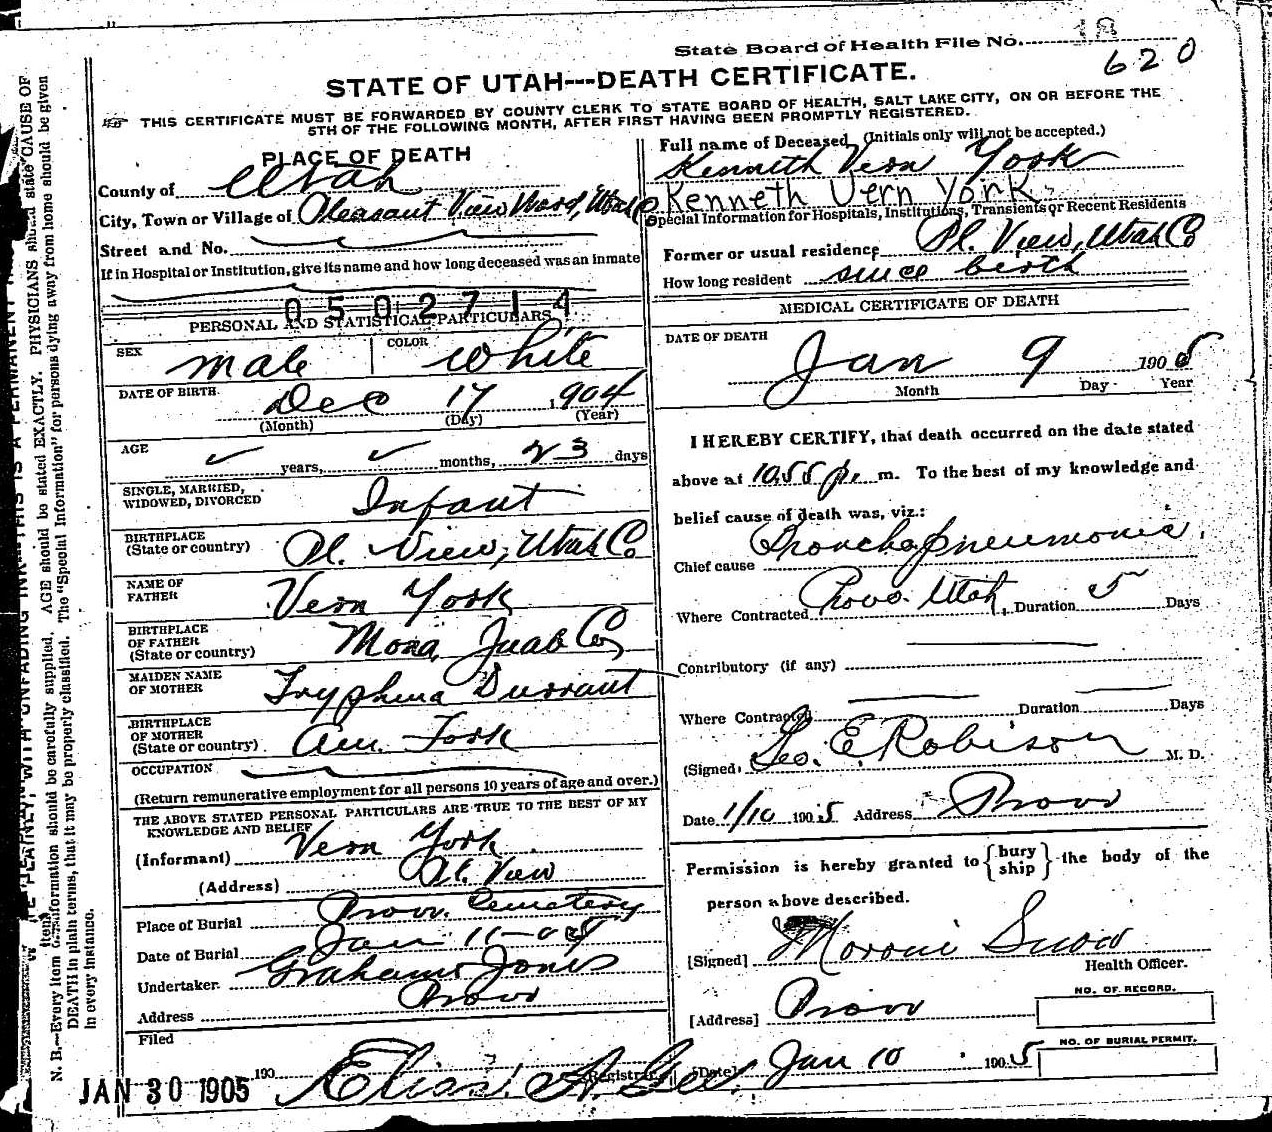 State Board of Health File No. 18
620
STATE OF UTAH---DEATH CERTIFICATE.
THIS CERTIFICATE MUST BE FORWARDED BY COUNTY CLERK TO STATE BOARD OF HEALTH, SALT LAKE CITY, ON OR BEFORE THE
5TH OF THE FOLLOWING MONTH, AFTER FIRST HAVING BEEN PROMPTLY REGISTERED.
PLACE OF DEATH
County of Utah
City, Town or Village of Pleasant View Ward, Utah Co
Street and No.
If in Hospital or Institution, give its name and how long deceased was an inmate
0502714
PERSONAL AND STATISTICAL PARTICULARS
SEX male COLOR White
DATE OF BIRTH Dec 17 1904
(Month) (Day) (Year)
AGE years, months, 23 days
SINGLE, MARRIED,
WIDOWED, DIVORCED Infant
BIRTHPLACE
(State or country) Pl. View, Utah Co
NAME OF
FATHER Vern York
BIRTHPLACE
OF FATHER
(State or country) Mona, Juab Co,
MAIDEN NAME
OF MOTHER Tryphena Durrant
BIRTHPLACE
OF MOTHER
(State or country) Am. Fork
OCCUPATION
(Return remunerative employment for all persons 10 years of age and over.)
THE ABOVE STATED PERSONAL PARTICULARS ARE TRUE TO THE BEST OF MY
KNOWLEDGE AND BELIEF
(Informant) Vern York
(Address) Pl. View
Place of Burial Provo. Cemetery
Date of Burial Jan 11-05
Undertaker. Graham Jones
Address Provo
Filed
JAN 30 1905 190 Elias A. Gee Registrar
Full name of Deceased, (Initials only will not be accepted.)
Kenneth Vern York
Kenneth Vern York
Special Information for Hospitals, Institutions, Transients or Recent Residents
Former or usual residence Pl. View, Utah Co
How long resident since birth
MEDICAL CERTIFICATE OF DEATH
DATE OF DEATH Jan 9 1905
Month Day Year
I HEREBY CERTIFY, that death occurred on the date stated
above at 10.55 p. m. To the best of my knowledge and
belief cause of death was, viz.:
Chief cause Broncho pneumonia.
Where Contracted Provo. Utah, Duration 5 Days
Contributory (if any)
Where Contracted Duration Days
(Signed) Geo. E. Robison M. D.
Date 1/10 1905 Address Provo
Permission is hereby granted to {bury ship} the body of the
person above described.
[Signed] Moroni Snow
Health Officer.
[Address] Provo
NO. OF RECORD.
[Date] Jan 10 1905
NO. OF BURIAL PERMIT.
N. B.—Every item of information should be carefully supplied. AGE should be stated EXACTLY. PHYSICIANS should state CAUSE OF
DEATH in plain terms, that it may be properly classified. The "Special Information" for persons dying away from home should be given
in every instance.